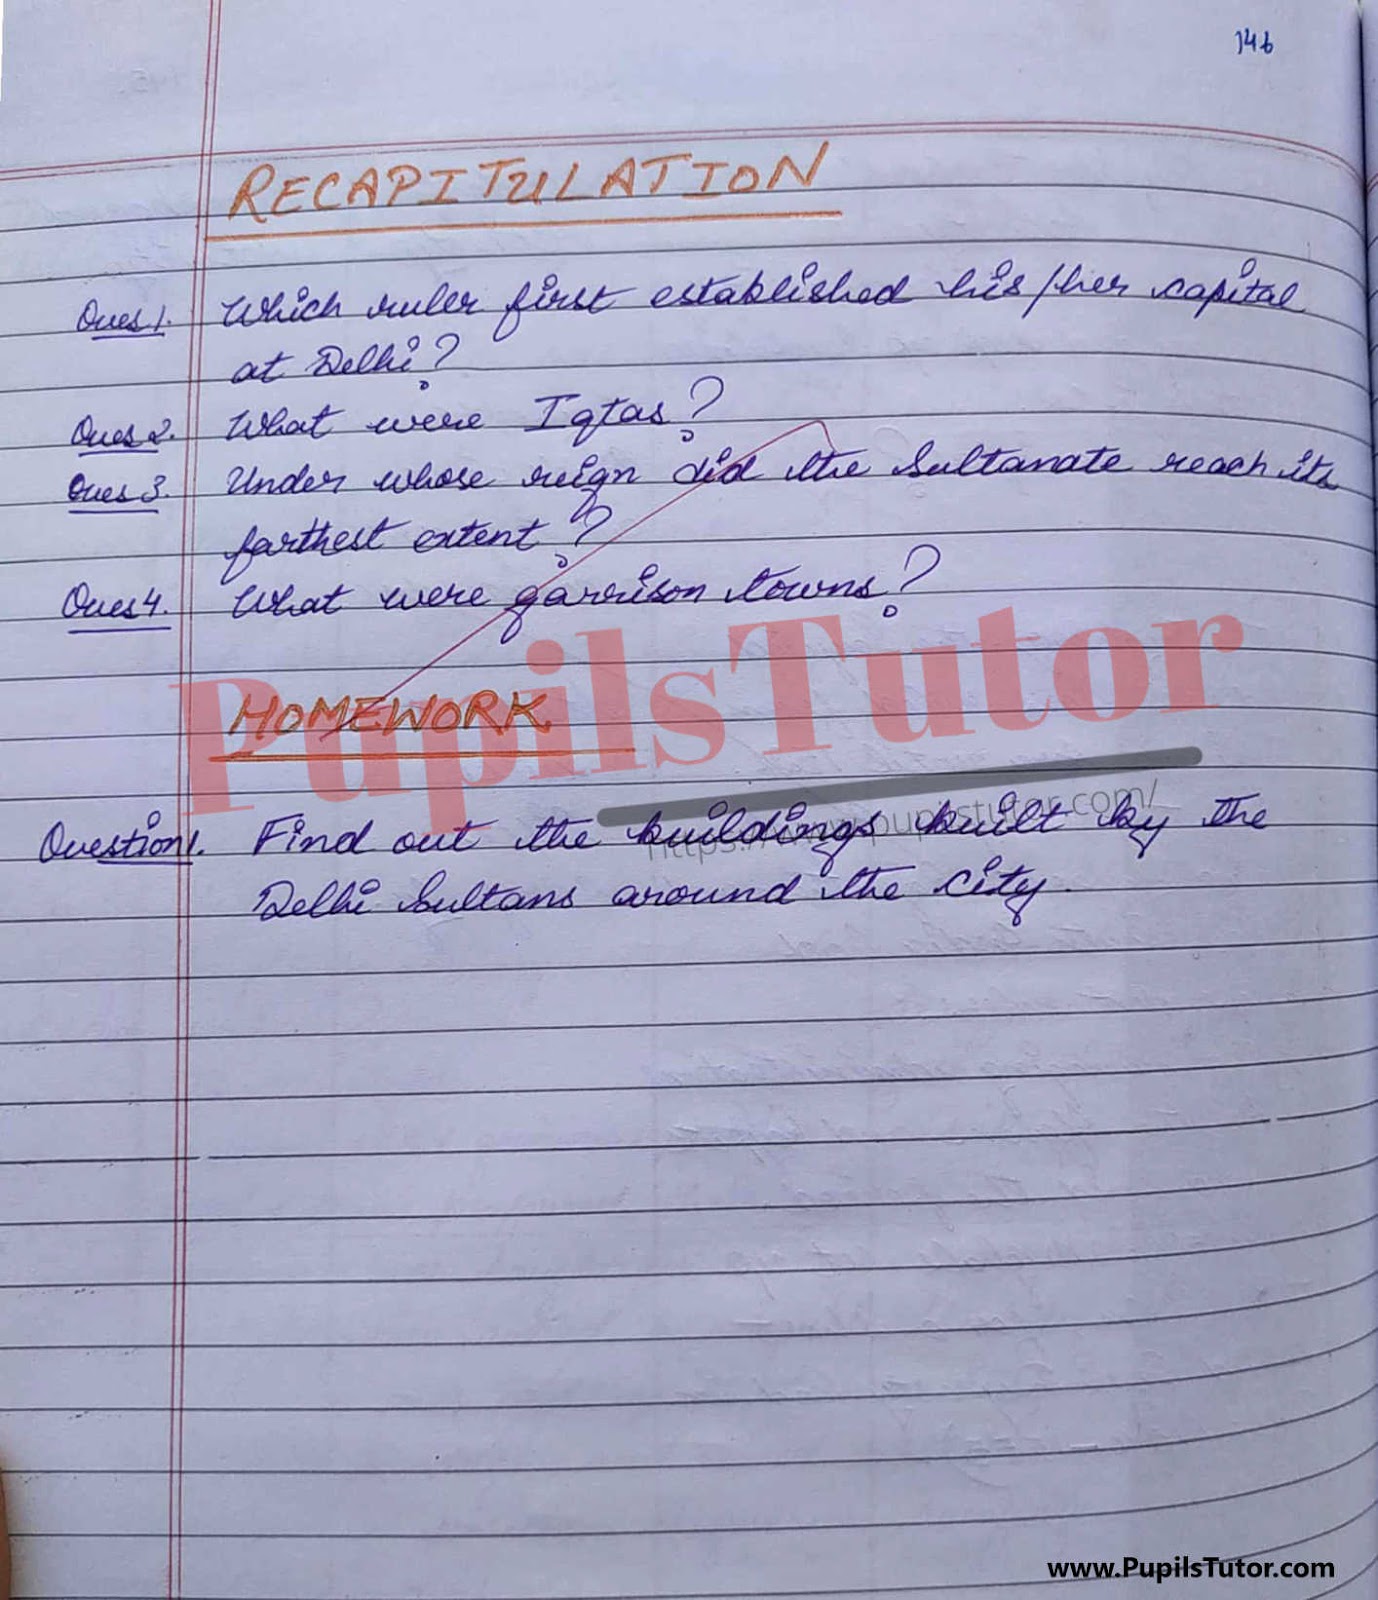 146
RECAPITULATION
Ques 1. Which ruler first established his/her capital
at Delhi?
Ques 2. What were Iqtas?
Ques 3. Under whose reign did the Sultanate reach its
farthest extent?
Ques 4. What were garrison towns?
PupilsTutor
HOMEWORK
https://www.pupilstutor.com/
Question 1. Find out the buildings built by the
Delhi Sultans around the city.
www.PupilsTutor.com